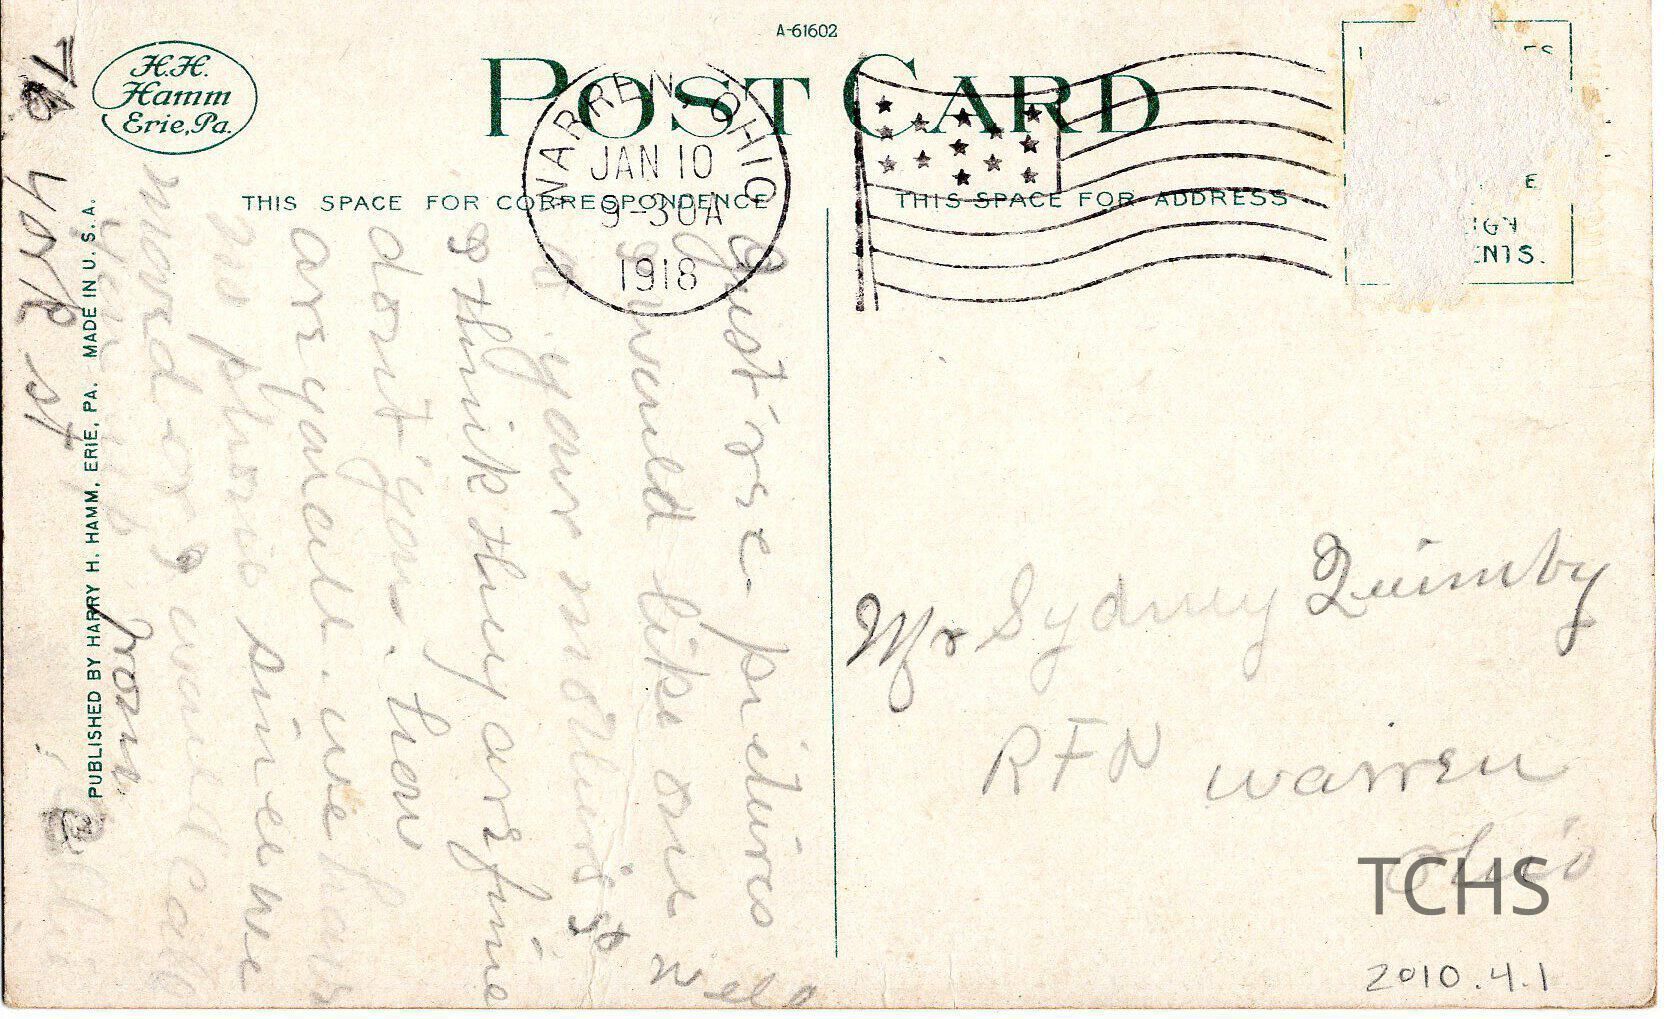 A-61602
H.H.
Hamm
Erie, Pa.
POST CARD
WARREN, OHIO
JAN 10
9-30A
1918
THIS SPACE FOR CORRESPONDENCE
THIS SPACE FOR ADDRESS
PUBLISHED BY HARRY H. HAMM, ERIE, PA. MADE IN U. S. A.
pictures
would like one
your mothers
I think they are fine
dont you. how
are you all. we have
no phone since we
moved or I would call
you up
York st
Well
Mr Sydney Quimby
RFD Warren
Ohio
TCHS
2010.4.1